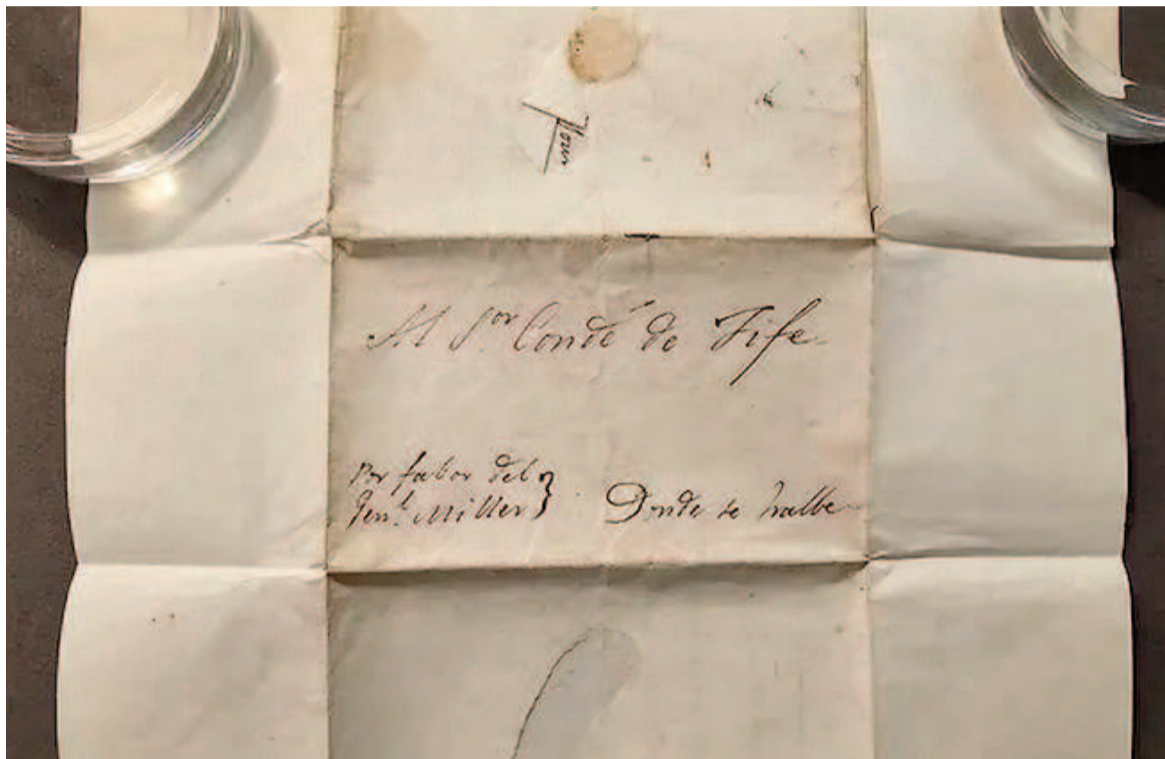 Al S.or Conde de Fife
Por fabor del
Gen.l Miller } Donde se halle